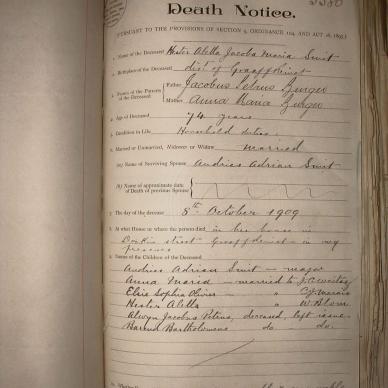 Death Notice.
[PURSUANT TO THE PROVISIONS OF SECTION 9, ORDINANCE 104, AND ACT
1. Name of the Deceased Hester Aletta Jacoba Maria Smit
2. Birthplace of the Deceased dist. of Graaff Reinet
3. Names of the Parents of the Deceased Father Jacobus Petrus Burger
Mother Anna Maria Burger
4. Age of Deceased 74 years
5. Condition in Life Household duties
6. Married or Unmarried, Widower or Widow married
(a) Name of Surviving Spouse Andries Adrian Smit
(b) Name of approximate date of Death of previous Spouse
7. The day of the decease 8th October 1909
8. At what House or where the person died in her house in
street Graaff Reinet in my
presence
Names of the Children of the Deceased
Andries Adrian Smit — major
Anna Maria — married to
Elsie Sophia Olivier — " Marais
Hester Aletta — " W. Blom
Alwyn Jacobus Petrus, deceased, left issue
Barend Bartholomeus do do.